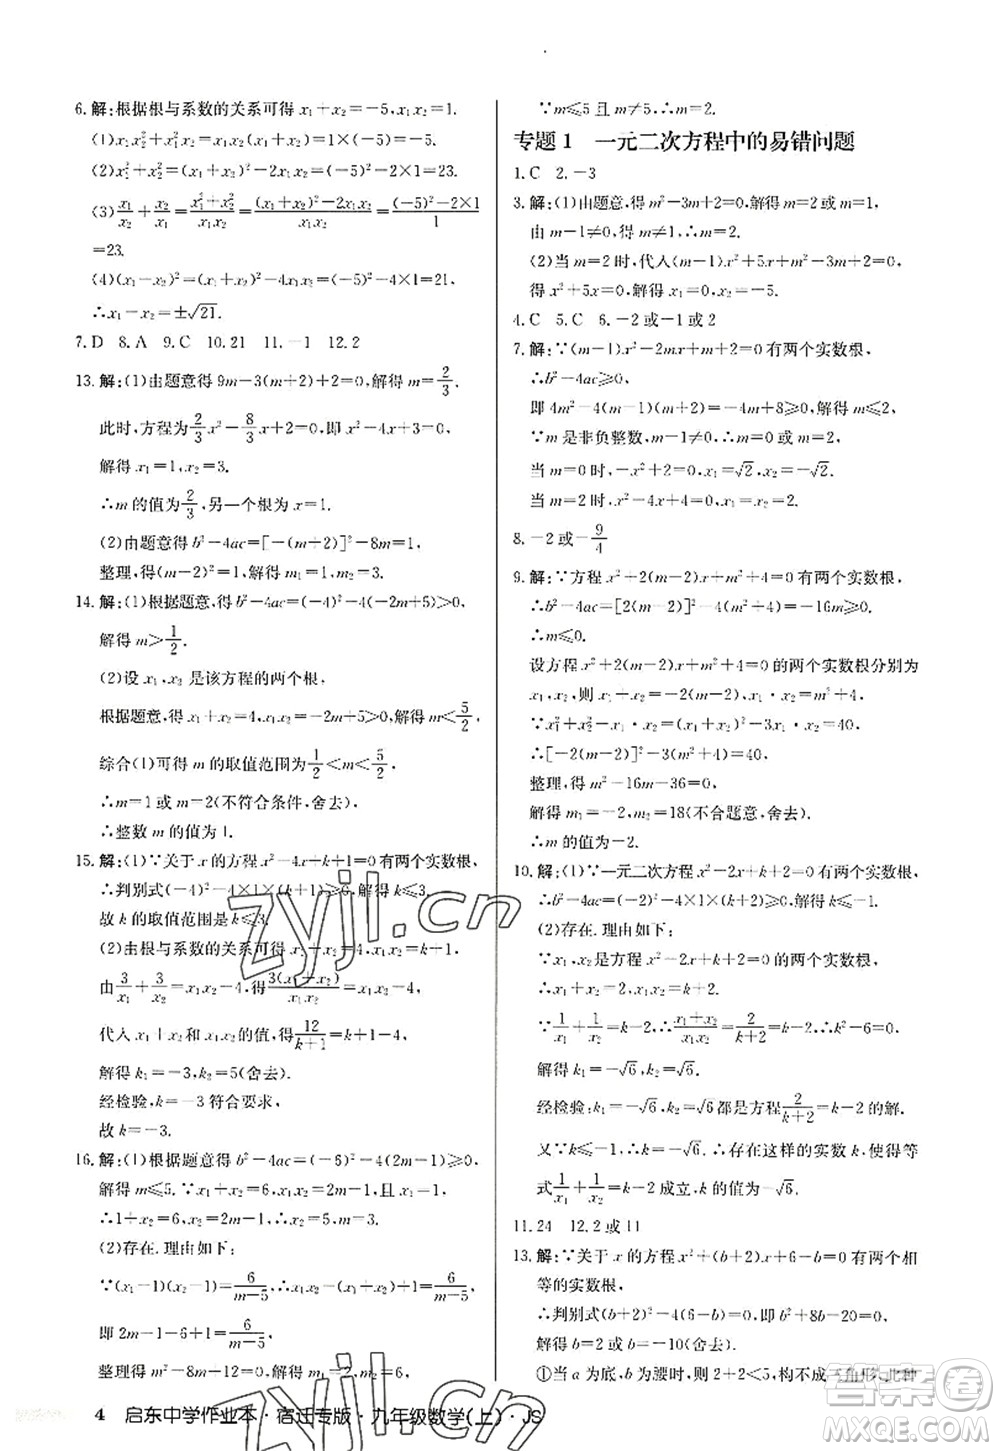 6. 解:根据根与系数的关系可得 x₁+x₂=-5,x₁x₂=1.
(1)x₁x₂²+x₁²x₂=x₁x₂(x₁+x₂)=1×(-5)=-5.
(2)x₁²+x₂²=(x₁+x₂)²-2x₁x₂=(-5)²-2×1=23.
(3)x₁/x₂+x₂/x₁=(x₁²+x₂²)/(x₁x₂)=((x₁+x₂)²-2x₁x₂)/(x₁x₂)=((-5)²-2×1)/1
=23.
(4)(x₁-x₂)²=(x₁+x₂)²-4x₁x₂=(-5)²-4×1=21,
∴x₁-x₂=±√21.
7. D 8. A 9. C 10. 21 11. -1 12. 2
13. 解:(1)由题意得 9m-3(m+2)+2=0,解得 m=2/3.
此时,方程为 2/3x²-8/3x+2=0,即 x²-4x+3=0,
解得 x₁=1,x₂=3.
∴m 的值为2/3,另一个根为1.
(2)由题意得 b²-4ac=[-(m+2)]²-8m=1,
整理,得(m-2)²=1,解得 m₁=1,m₂=3.
14. 解:(1)根据题意,得 b²-4ac=(-4)²-4(-2m+5)>0,
解得 m>1/2.
(2)设 x₁,x₂是该方程的两个根,
根据题意,得 x₁+x₂=4,x₁x₂=-2m+5>0,解得m<5/2.
综合(1)可得 m 的取值范围为1/2<m<5/2.
∴m=1或m=2(不符合条件,舍去).
∴整数 m 的值为 1.
15. 解:(1)∵关于 x 的方程 x²-4x+k+1=0 有两个实数根,
∴判别式(-4)²-4×1×(k+1)≥0,解得 k≤3.
故 k 的取值范围是 k≤3.
(2)由根与系数的关系可得 x₁+x₂=4,x₁x₂=k+1,
由3/x₁+3/x₂=x₁x₂-4,得3(x₁+x₂)/(x₁x₂)=x₁x₂-4,
代入 x₁+x₂ 和 x₁x₂ 的值,得12/(k+1)=k+1-4,
解得 k₁=-3,k₂=5(舍去).
经检验,k=-3 符合要求,
故 k=-3.
16. 解:(1)根据题意得 b²-4ac=(-6)²-4(2m-1)≥0,
解得 m≤5.∵x₁+x₂=6,x₁x₂=2m-1,x₁=1,
∴1+x₂=6,x₂=2m-1,∴x₂=5,m=3.
(2)存在.理由如下:
∵(x₁-1)(x₂-1)=6/(m-5),∴x₁x₂-(x₁+x₂)+1=6/(m-5),
即 2m-1-6+1=6/(m-5),
整理得 m²-8m+12=0,解得 m₁=2,m₂=6.
∵m≤5 且 m≠5,∴m=2.
专题1 一元二次方程中的易错问题
1. C 2. -3
3. 解:(1)由题意,得 m²-3m+2=0,解得 m=2 或 m=1,
由 m-1≠0,得 m≠1,∴m=2.
(2)当 m=2 时,代入(m-1)x²+5x+m²-3m+2=0,
得 x²+5x=0,解得 x₁=0,x₂=-5.
4. C 5. C 6. -2或-1或2
7. 解:∵(m-1)x²-2mx+m+2=0 有两个实数根,
∴b²-4ac≥0,
即 4m²-4(m-1)(m+2)=-4m+8≥0,解得 m≤2.
∵m 是非负整数,m-1≠0,∴m=0或m=2.
当 m=0 时,-x²+2=0,x₁=√2,x₂=-√2.
当 m=2 时,x²-4x+4=0,x₁=x₂=2.
8. -2或-9/4
9. 解:∵方程 x²+2(m-2)x+m²+4=0 有两个实数根,
∴b²-4ac=[2(m-2)]²-4(m²+4)=-16m≥0,
∴m≤0.
设方程 x²+2(m-2)x+m²+4=0 的两个实数根分别为
x₁,x₂,则 x₁+x₂=-2(m-2),x₁·x₂=m²+4,
∵x₁²+x₂²-x₁x₂=(x₁+x₂)²-3x₁·x₂=40,
∴[-2(m-2)]²-3(m²+4)=40,
整理,得 m²-16m-36=0,
解得 m₁=-2,m₂=18(不合题意,舍去).
∴m 的值为-2.
10. 解:(1)∵一元二次方程 x²-2x+k+2=0 有两个实数根,
∴b²-4ac=(-2)²-4×1×(k+2)≥0,解得 k≤-1.
(2)存在.理由如下:
∵x₁,x₂ 是一元二次方程 x²-2x+k+2=0 的两个实数根,
∴x₁+x₂=2,x₁x₂=k+2.
∵1/x₁+1/x₂=k-2,∴(x₁+x₂)/(x₁x₂)=2/(k+2)=k-2,∴k²-6=0.
解得 k₁=-√6,k₂=√6.
经检验,k₁=-√6,k₂=√6 都是方程2/(k+2)=k-2 的解.
又∵k≤-1,∴k=-√6.∴存在这样的实数 k,使得等
式1/x₁+1/x₂=k-2 成立,k 的值为-√6.
11. 24 12. 2或11
13. 解:∵关于 x 的方程 x²+(b+2)x+6-b=0 有两个相
等的实数根,
∴判别式(b+2)²-4(6-b)=0,即 b²+8b-20=0,
解得 b=2 或 b=-10(舍去).
①当 a 为底,b 为腰时,则 2+2<5,构不成三角形,此种
4 启东中学作业本·宿迁专版·九年级数学(上)·JS
zyjl.cn
zyjl.cn
答案圈